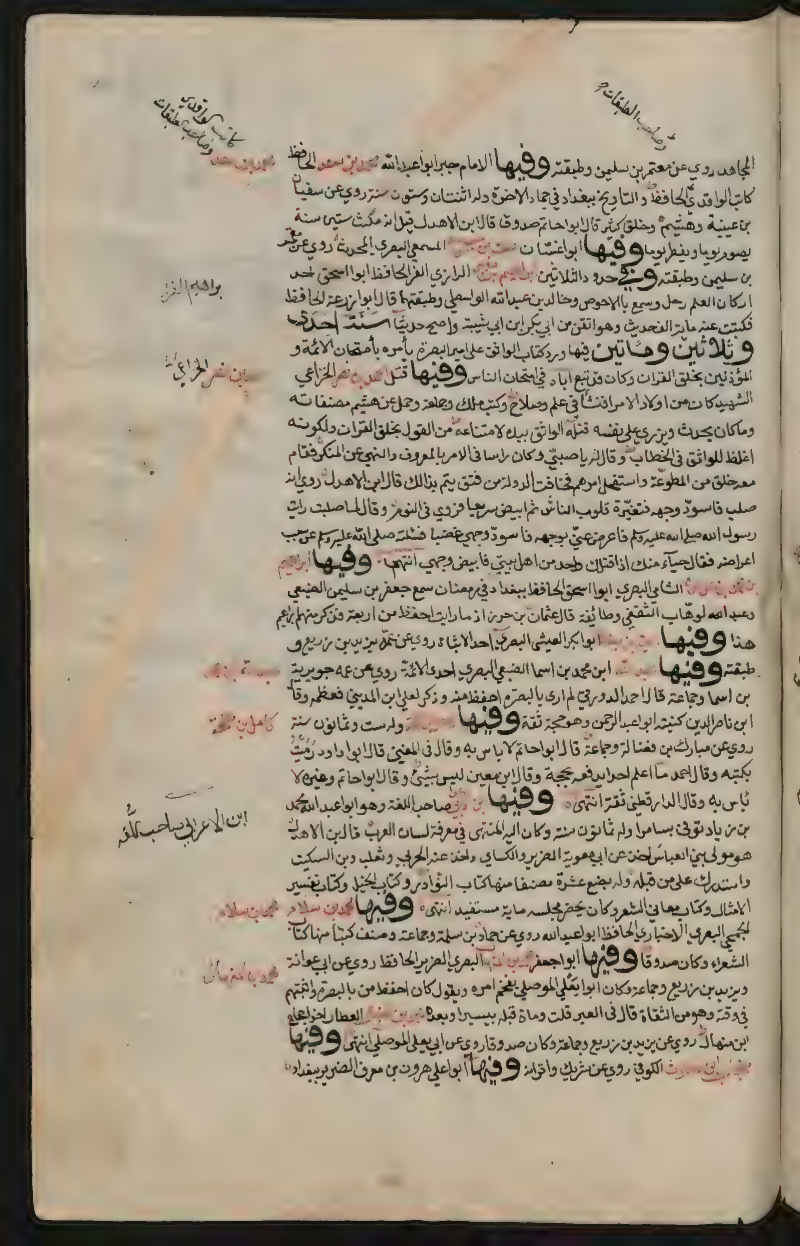 وصاحب الطبقات
كاتب الواقدي
وصاحب الطبقات
المجاهد روي عن معتمر بن سليمن وطبقته وفيها الامام حبر ابو عبدالله محمد بن سعد الحافظ
محمد بن سعد
كاتب الواقدي الحافظ والتاريخ ببغداد في جماد الاخرة وله اثنتان وستون سنة روي عن سفيان
بن عيينة وهشيم وخلق كثير قال ابو حاتم صدوق قال ابن الاهدل قيل انه مكث ستين سنة
يصوم يوما ويفطر يوما وفيها ابو غسان المسمعي البصري المحدث روي عن معتمر
بن سليمن وطبقته وفي حدود الثلاثين ابراهيم بن الرازي الفرا الحافظ ابو اسحق احد
براهيم الفرا
اركان العلم رحل وسمع بالاحوص وخالد بن عبدالله الواسطي وطبقتهما قال ابو زرعة الحافظ
فكتبت عنه ماية الف حديث وهو اتقن من ابي بكر ابن ابي شيبة واصح حديثا سنة احدى
وثلاثين وماتين فيها ورد كتاب الواثق على امير البصرة يأمره بأمتحان الائمة و
المؤذنين بخلق القران وكان قد تبع اباه في امتحان الناس وفيها قتل احمد بن نصر الخزاعي
بن نصر الخزاعي
الشهيد كان من اولاد الامرا فنشأ في علم وصلاح وكتب عن ملك وجماعة وحمل عن هشيم مصنفاته
وما كان يحدث ويزري على نفسه قتله الواثق بيده لامتناعه من القول بخلق القران ولكونه
اغلظ للواثق في الخطاب وقال له يا صبي وكان راسا في الامر بالمعروف والنهي عن المنكر فقام
معه خلق من المطوعة واستفحل امرهم فخافت الدولة من فتق يتم بذالك قال ابن الاهدل روي انه
صلب فاسود وجهه فتغيرت قلوب الناس ثم ابيض سريعا فروي في النوم وقال لما صلبت رايت
رسول الله صلى الله عليه وسلم فاعرض عني بوجهه فاسود وجهي غضبا فسئلته صلى الله عليه وسلم عن سبب
اعراضه فقال حياء منك اذ قتلك واحد من اهل بيتي فابيض وجهي انتهى وفيها ابراهيم
الشامي البصري ابو اسحق الحافظ ببغداد في رمضان سمع جعفر بن سليمن الضبعي
وعبد الوهاب الثقفي وطائفة قال عثمان بن خرزاذ ما رايت احفظ من اربعة فذكر منهم ابراهيم
هذا وفيها ابو بكر العيشي البصري احد الاثبات روي عن عمه يزيد بن زريع و
طبقته وفيها ابن محمد بن اسما الضبعي البصري احد الائمة روي عن عمه جويرية
بن اسما وجماعة قال احمد الدورقي لم ار بالبصرة احفظ منه وذكر لعلي ابن المديني فعظمه وقال
ابن ناصر الدين كنيته ابو عبد الرحمن وهو حجة ثقة وفيها وله ست وثمانون سنة
كامل بن طلحة
روي عن مبارك بن فضالة وجماعة قال ابو حاتم لا باس به وقال في المغني قال ابو داود رميت
بكتبه وقال احمد ما اعلم احدا يدفعه بحجة وقال ابن معين ليس بشئ وقال ابو حاتم وغيره لا
باس به وقال الدارقطني ثقة انتهى وفيها صاحب اللغة وهو ابو عبد الله محمد
بن زياد توفي بسامرا وله ثمانون سنة وكان اليه المنتهى في معرفة لسان العرب قال ابن الاهدل
ابن الاعرابي صاحب اللغه
هو مولى بني العباس اخذ عن ابي معوية الضرير والكساي واخذ عنه الحربي وثعلب وبن السكيت
واستدرك على من قبله وله بضع عشرة مصنفا منها كتاب النوادر وكتاب الخيل وكتاب تفسير
الامثال وكتاب معاني الشعر وكان يحضر مجلسه ماية مستفيد انتهى وفيها محمد بن سلام
محمد بن سلام
الجمحي البصري الاخباري الحافظ ابو عبد الله روي عن حماد بن سلمة وجماعة وصنف كتبا منها كتاب
الشعراء وكان صدوقا وفيها ابو جعفر محمد بن المنهال البصري الضرير الحافظ روي عن ابي عوانة
محمد بن المنهال
ويزيد بن زريع وجماعة وكان ابو يعلى الموصلي يفخم امره ويقول كان احفظ من بالبصرة واثبتهم
في وقته وهو من الثقاة قال في العبر قلت ومات قبله بيسير او بعده محمد بن منهال العطار اخو حجاج
ابن منهال روي عن يزيد بن زريع وجماعة وكان صدوقا روي عن ابي يعلى الموصلي انتهى وفيها
الكوفي روي عن شريك واقرانه وفيها ابو علي هرون بن معروف الضرير ببغداد